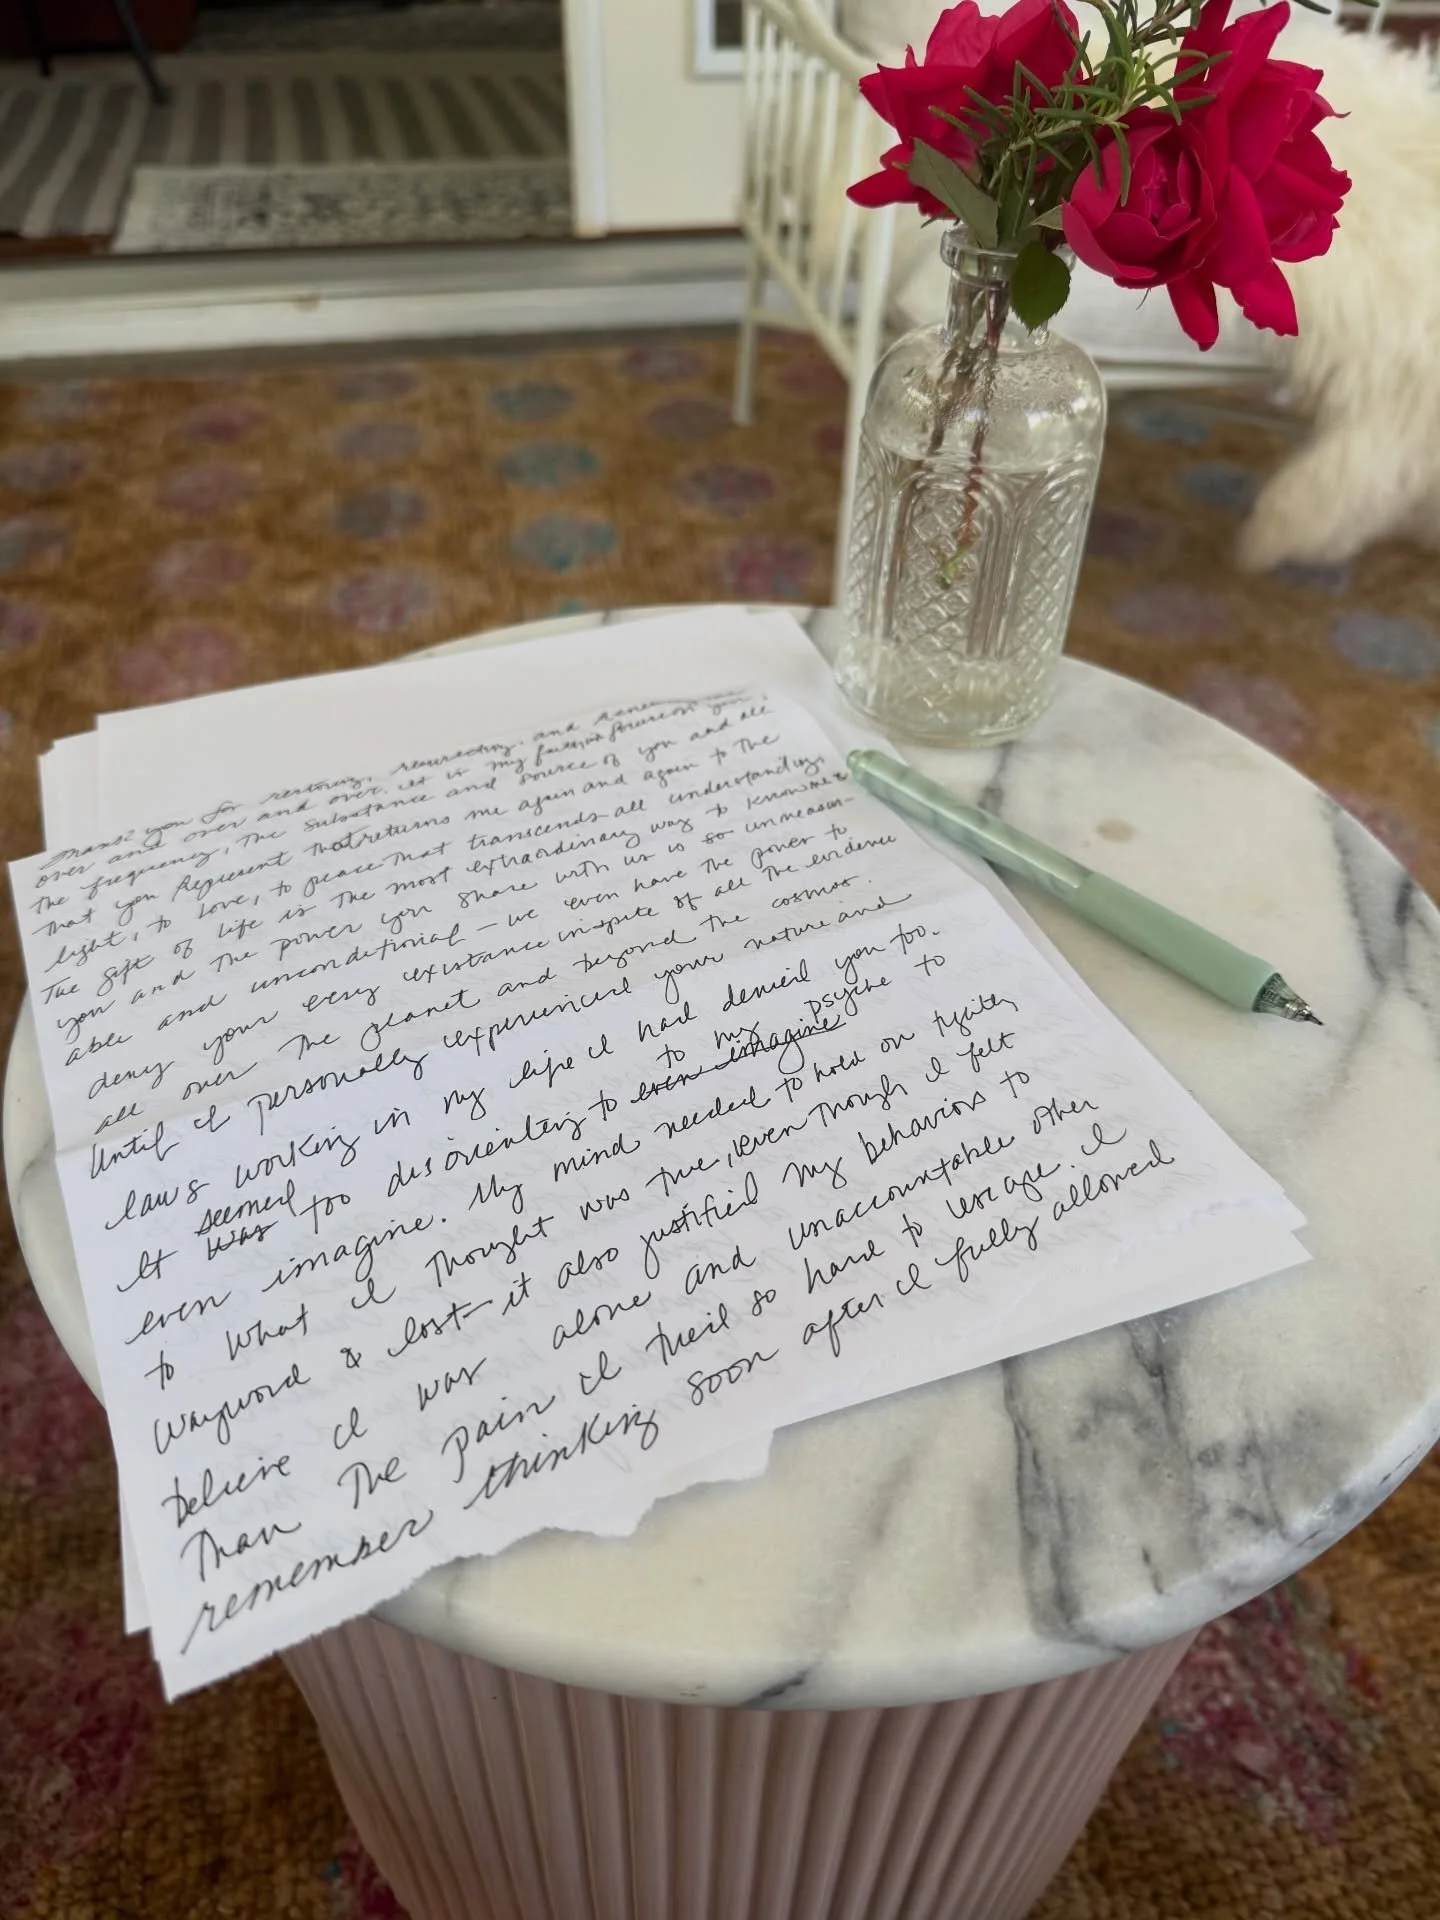 Thank you for restoring, resurrecting, and
over and over and over. It is my
the frequency, the substance and source of you and all
that you Represent that returns me again and again to the
light, to love, to peace that transcends all understanding.
The gift of life is the most extraordinary way to know
you and the power you share with us is so unmeasur-
able and unconditional - we even have the power to
deny your very existance inspite of all the evidence
all over the planet and beyond the cosmos.
Until I personally experienced your nature and
laws working in my life I had denied you too.
It was seemed too disorienting to even imagine to my psyche to
even imagine. My mind needed to hold on tightly
to what I thought was true, even though I felt
wayword & lost - it also justified my behaviors to
believe I was alone and unaccountable other
than the pain I tried so hard to escape. I
remember thinking soon after I fully allowed